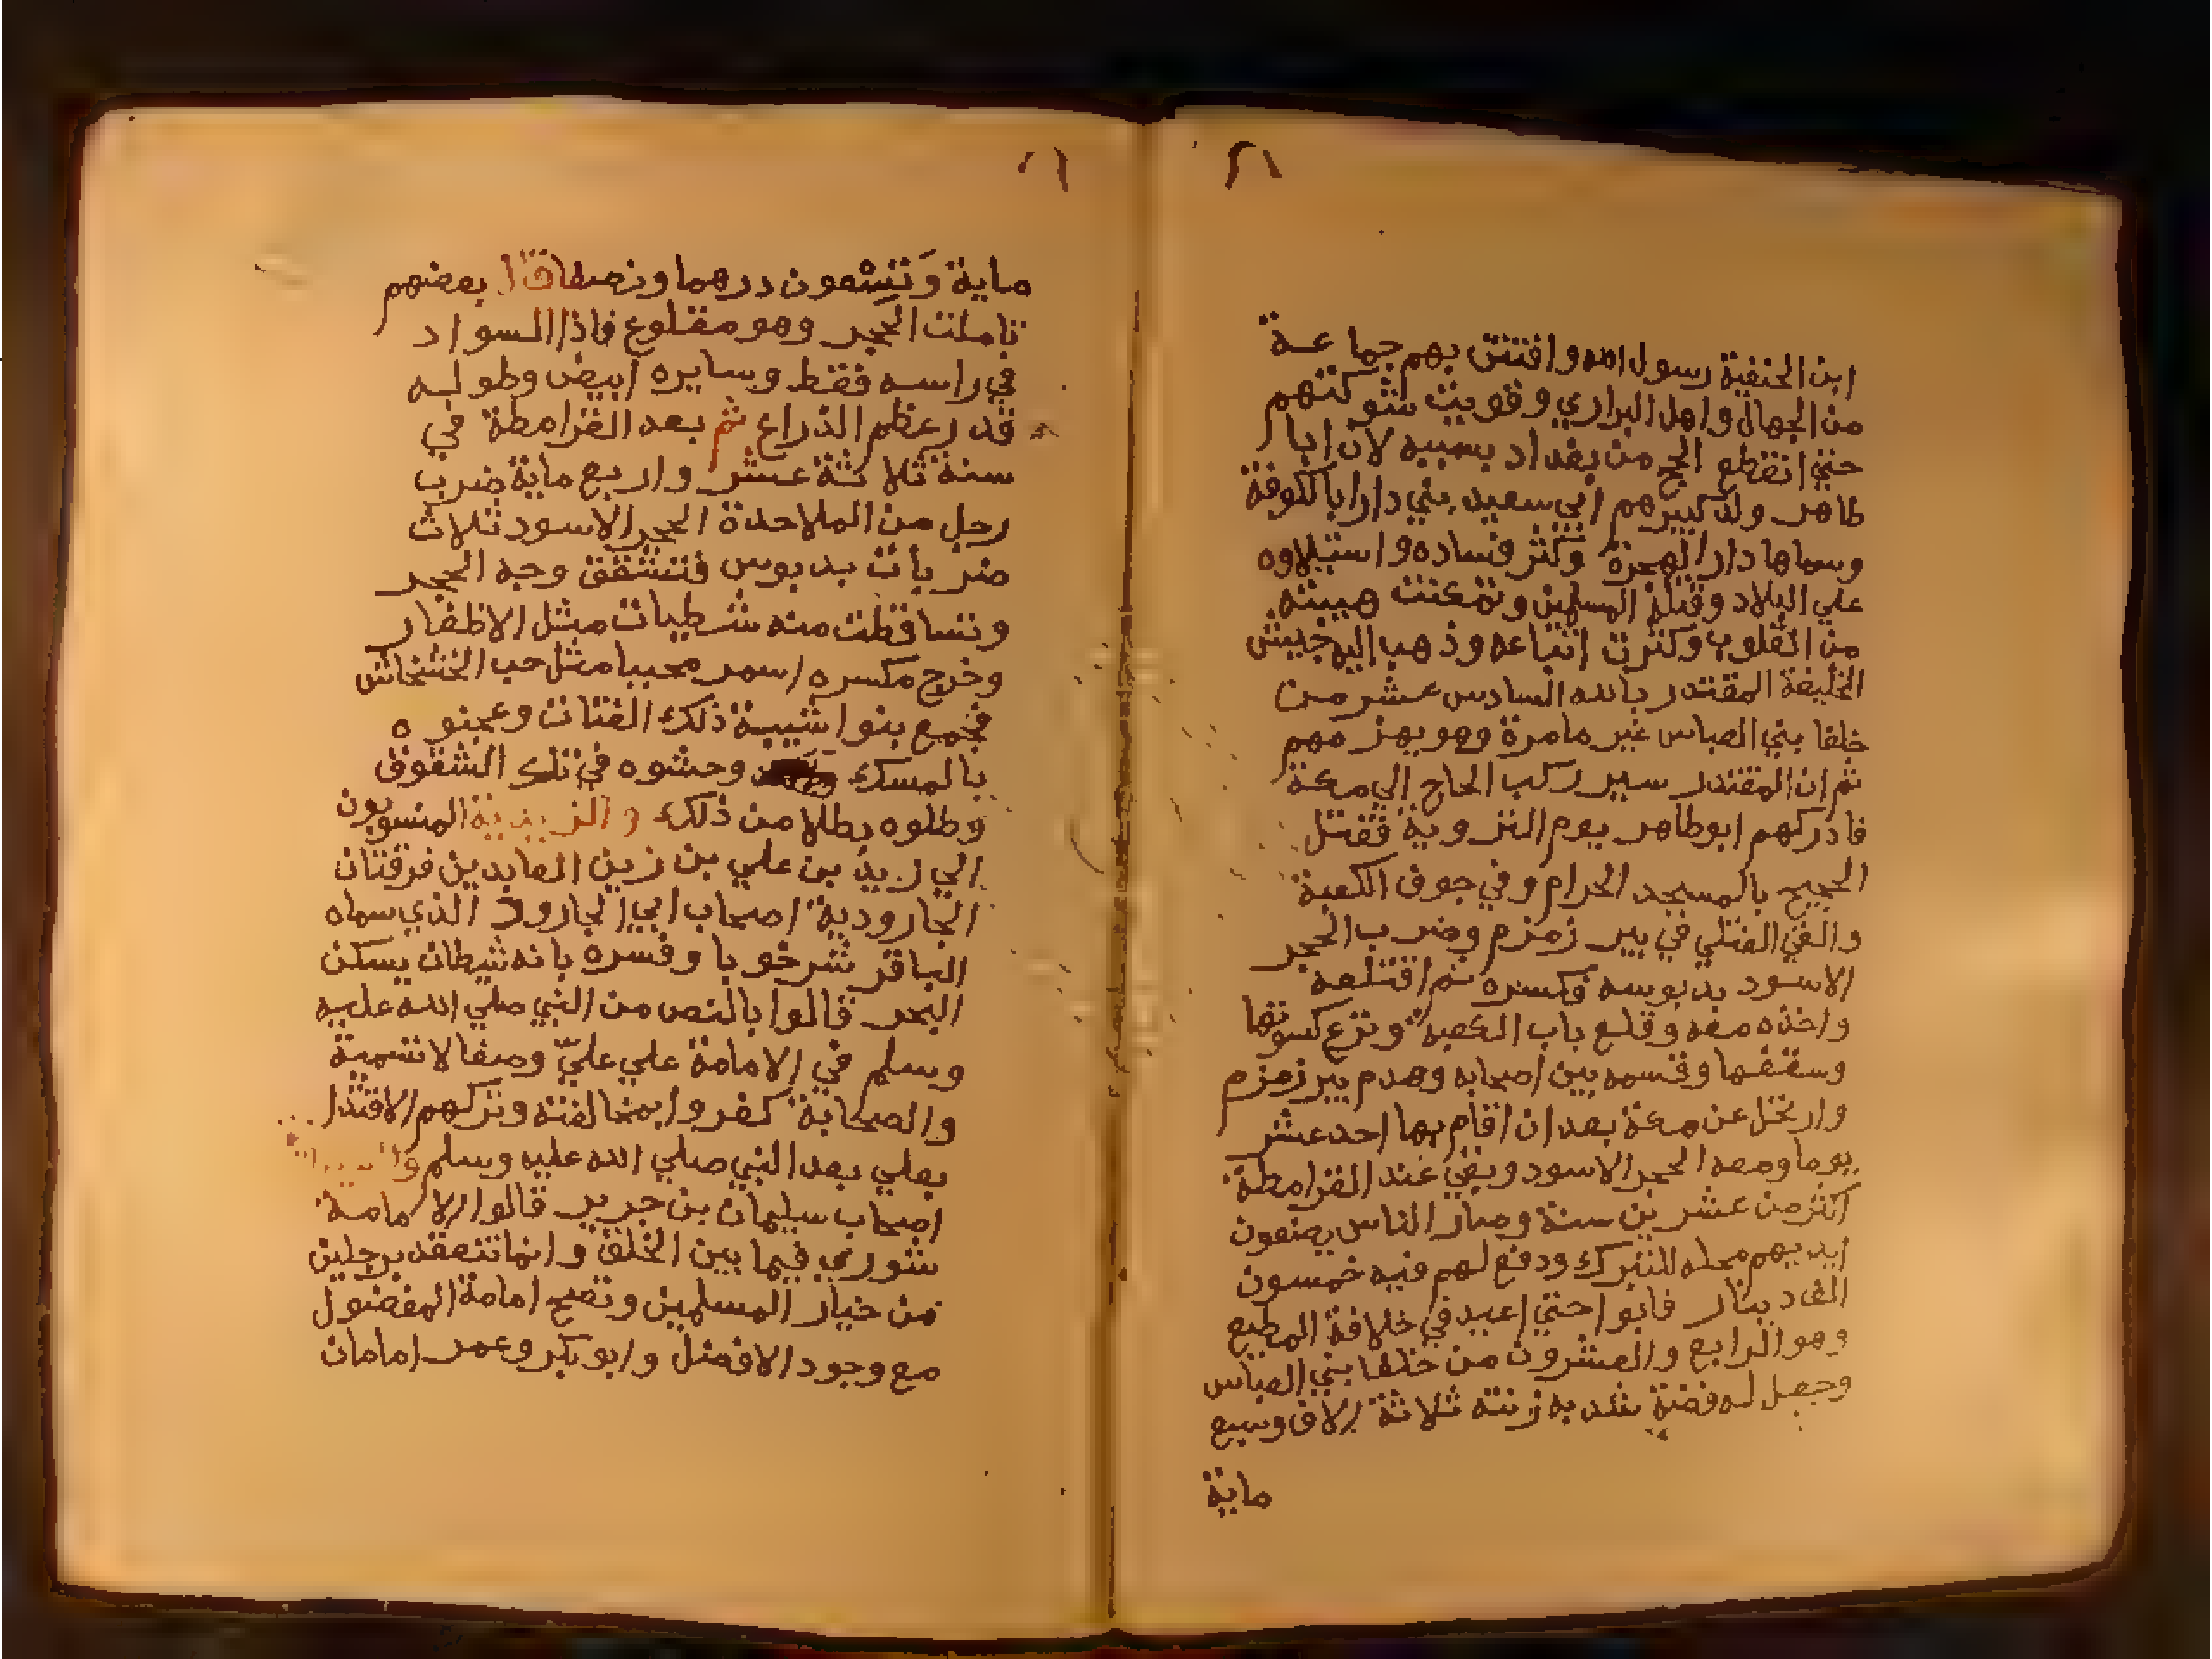 ابن الحنفية رسول الله وافتتن بهم جماعة
من الجهال واهل البراري وقويت شوكتهم
حتي انقطع الحج من بغداد بسببه لان ابا
طاهر ولد كبيرهم ابي سعيد بني دارا بالكوفة
وسماها دار الهجرة وكثر فساده واستيلاوه
علي البلاد وقتله المسلمين وتمكنت هيبته
من القلوب وكثرت اتباعه وذهب اليه جيش
الخليفة المقتدر بالله السادس عشر من
خلفا بني العباس غير مامرة وهو يهزمهم
ثم ان المقتدر سير ركب الحاج الي مكة
فادركهم ابوطاهر يوم التروية فقتل
الحجيج بالمسجد الحرام وفي جوف الكعبة
والقي القتلي في بير زمزم وضرب الحجر
الاسود بدبوسه فكسره ثم اقتلعه
واخذه معه وقلع باب الكعبة ونزع كسوتها
وسقفها وقسمه بين اصحابه وهدم بير زمزم
وارتحل عن مكة بعد ان اقام بها احد عشر
يوما ومعه الحجر الاسود وبقي عند القرامطة
اكثر من عشرين سنة وصار الناس يضعون
ايديهم محله للتبرك ودفع لهم فيه خمسون
الف دينار فابوا حتي اعيد في خلافة المطيع
وهو الرابع والعشرون من خلفا بني العباس
وجعل له فضة شد به زنته ثلاثة الاف وسبع
ماية
ماية وتسْعون درهما ونصفا قال بعضهم
تاملت الحجر وهو مقلوع فاذا السواد
في راسه فقط وسايره ابيض وطوله
قدر عظم الذراع ثم بعد القرامطة في
سنة ثلاثة عشر واربع ماية ضرب
رجل من الملاحدة الحجر الاسود ثلاث
ضربات بدبوس فتشقق وجه الحجر
وتساقطت منه شطيات مثل الاظفار
وخرج مكسره اسمر محببا مثل حب الخشخاش
فجمع بنوا شيبة ذلك الفتات وعجنوه
بالمسك وحشوه في تلك الشقوق
وطلوه بطلا من ذلك والزيدية المنسوبون
الي زيد بن علي بن زين العابدين فرقتان
الجارودية اصحاب ابي الجارود الذي سماه
الباقر شرخوبا وفسره بانه شيطان يسكن
البحر قالوا بالنص من النبي صلي الله عليه
وسلم في الامامة علي عليّ وصفا لا تسمية
والصحابة كفروا بمخالفته وتركهم الاقتدا
بعلي بعد النبي صلي الله عليه وسلم
اصحاب سليمان بن جرير قالوا الامامة
شوري فيما بين الخلق وانما تنعقد برجلين
من خيار المسلمين وتصح امامة المفضول
مع وجود الافضل وابو بكر وعمر امامان